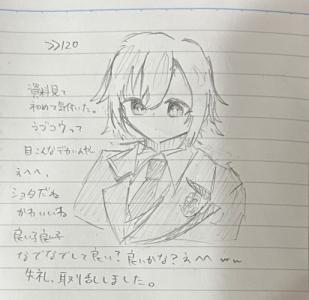 >>120
資料見て
初めて気付いた。
ラブコウって
目こんなデカいんや
えへへ、
ショタだね
かわいいね
良い子良い子
なでなでして良い?良いかな?えへへ ww
失礼、取り乱しました。